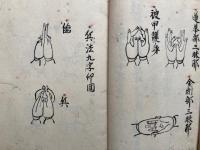 蓮華部三昧耶
金剛部三昧耶
被甲護身
兵法九字印圖
臨
兵